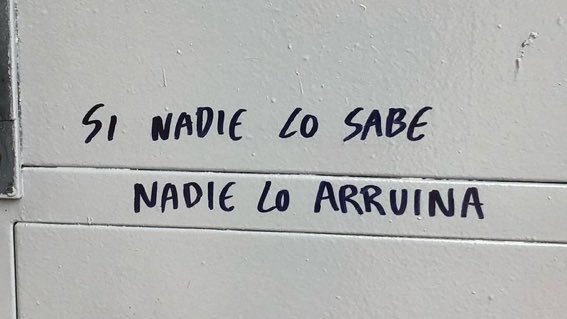 SI NADIE LO SABE
NADIE LO ARRUINA